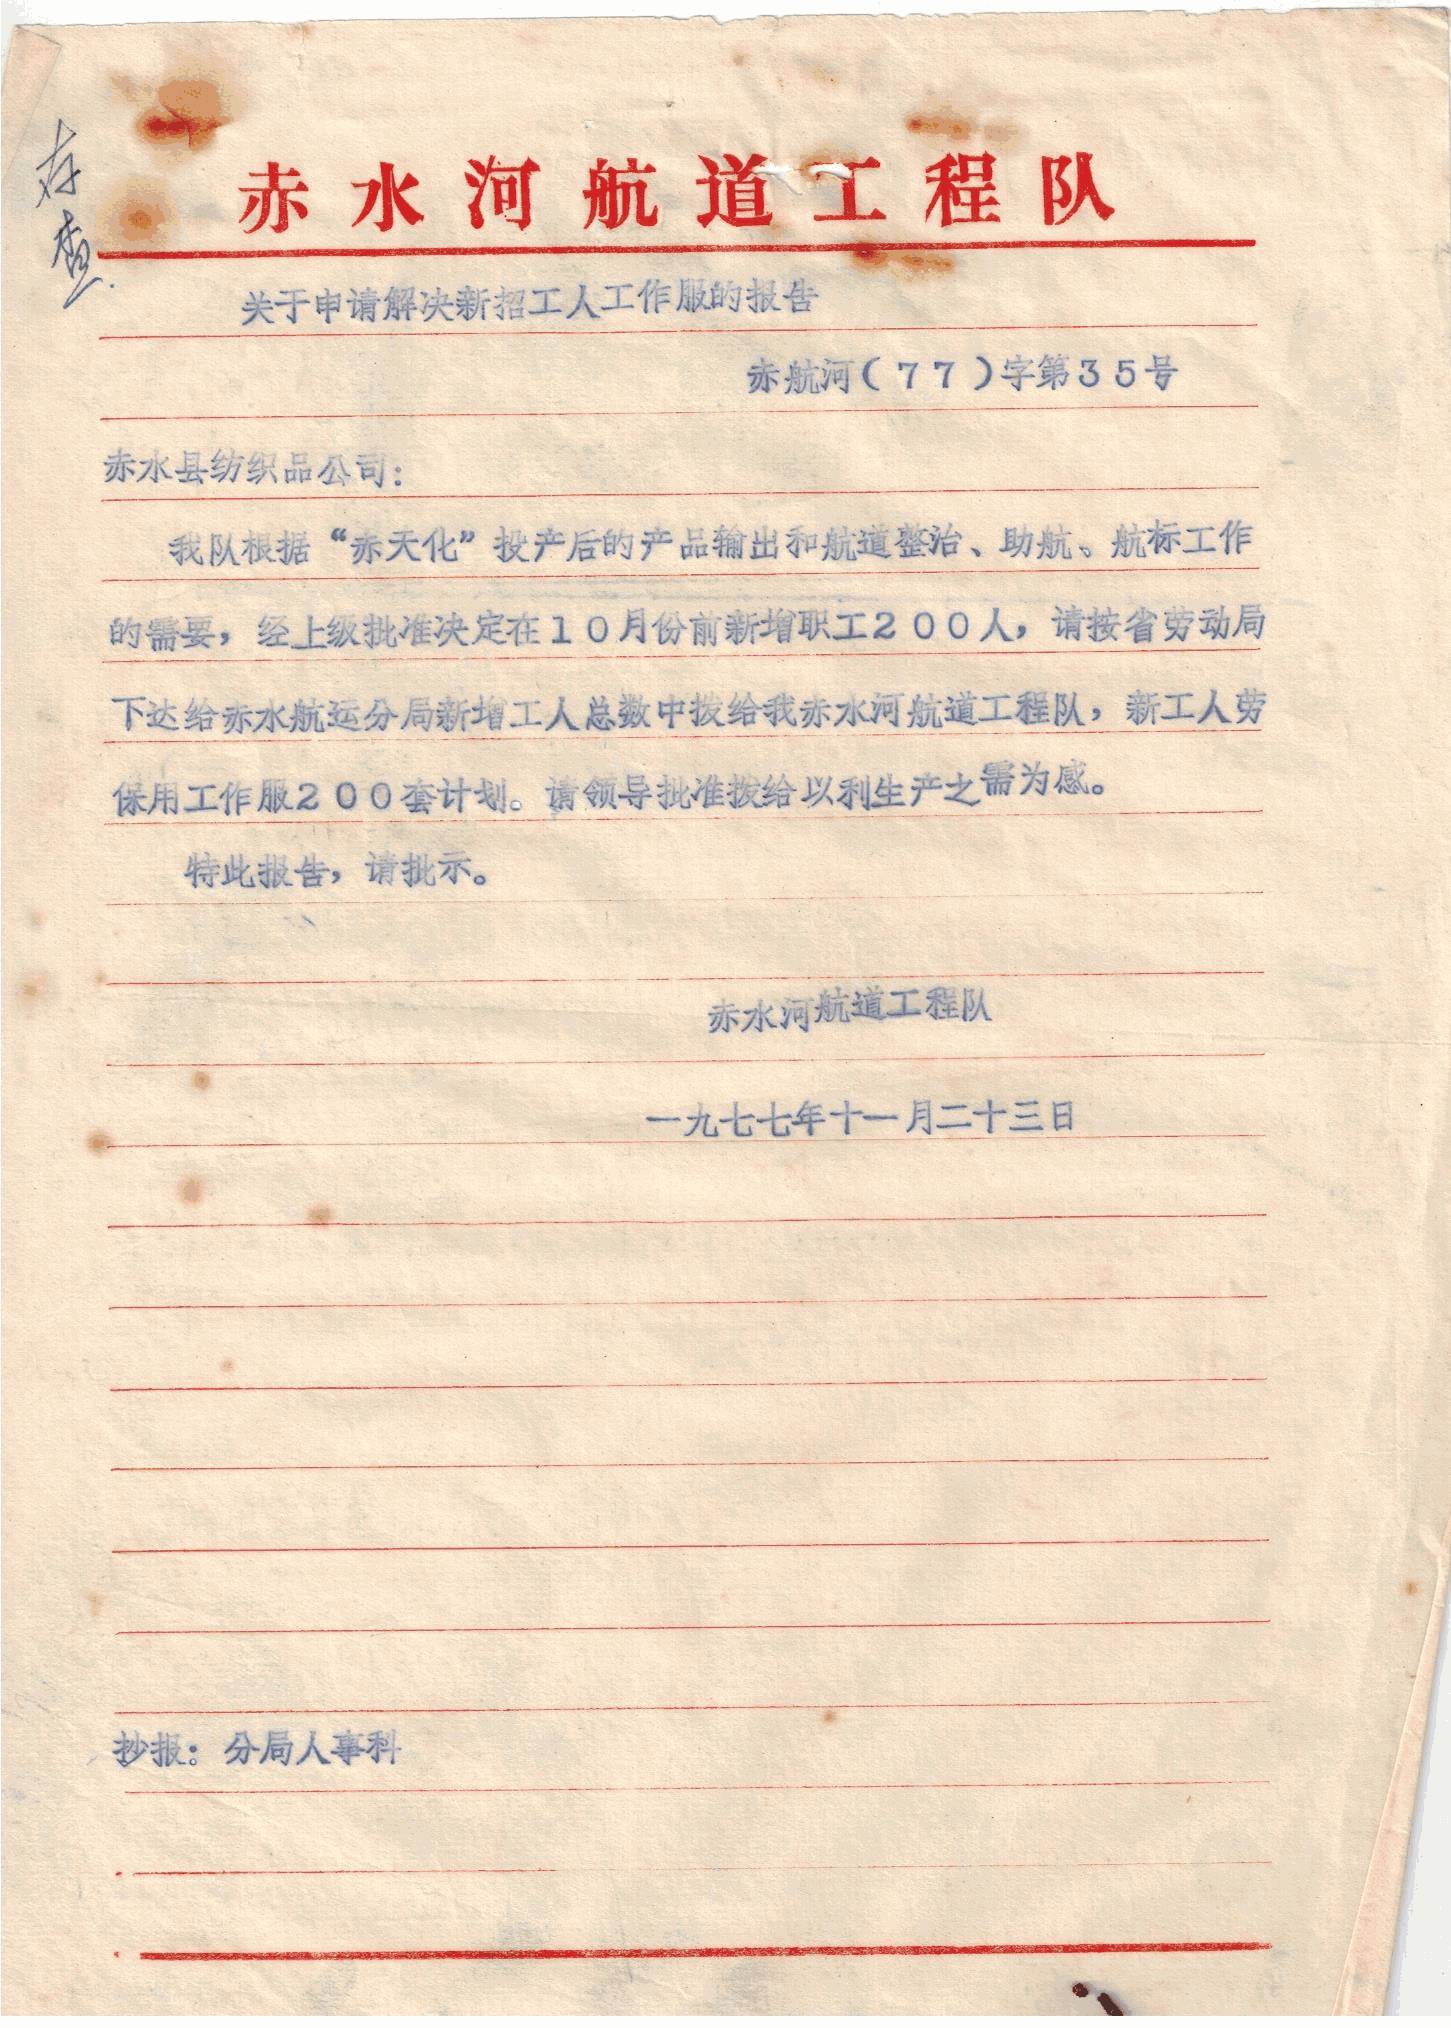 存查
赤水河航道工程队
关于申请解决新招工人工作服的报告
赤航河(77)字第35号
赤水县纺织品公司:
我队根据“赤天化”投产后的产品输出和航道整治、助航、航标工作
的需要，经上级批准决定在10月份前新增职工200人，请按省劳动局
下达给赤水航运分局新增工人总数中拨给我赤水河航道工程队，新工人劳
保用工作服200套计划。请领导批准拨给以利生产之需为感。
特此报告，请批示。
赤水河航道工程队
一九七七年十一月二十三日
抄报：分局人事科